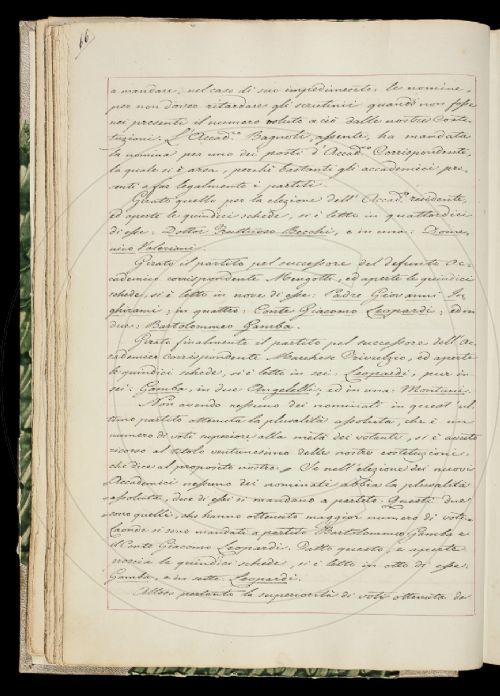 66
a mandare, nel caso di suo impedimento, le nomine,
per non dover ritardare gli scrutinii quando non fosse
noi presente il numero voluto a ciò dalle nostre Costi-
tuzioni. L'Accad.co Bagnoli, assente, ha mandata
la nomina per uno dei posti d'Accad.co Corrispondente,
la quale si è arsa, perchè bastanti gli accademici pre-
senti a far legalmente i partiti.
Girato quello per la elezione dell'Accad.co residente,
ed aperte le quindici schede, si è letto in quattordici
di esse: Dottor Fruttuoso Becchi, e in una: Dome-
nico Valeriani.
Girato il partito pel successore del defunto Ac-
cademico corrispondente Mengotti, ed aperte le quindici
schede, si è letto in nove di esse: Padre Giovanni In-
ghirami; in quattro: Conte Giacomo Leopardi; ed in
due: Bartolommeo Gamba.
Girato finalmente il partito pel successore dell'Ac-
cademico corrispondente Marchese Trivulzio, ed aperte
le quindici schede, si è letto in sei: Leopardi, pure in
sei: Gamba, in due Angelelli, ed in una: Montanari.
Non avendo nessuno dei nominati in quest'ul-
timo partito ottenuta la pluralità assoluta, che è un
numero di voti superiore alla metà dei votanti, si è avuto
ricorso al titolo ventunesimo delle nostre costituzioni,
che dice al proposito nostro: Se nell'elezione dei nuovi
Accademici nessuno dei nominati abbia la pluralità
assoluta, due di essi si mandano a partito. Questi due
sono quelli, che hanno ottenuto maggior numero di voti.
Laonde si sono mandati a partito Bartolommeo Gamba e
il Conte Giacomo Leopardi. Dopo questo, e aperte
le quindici schede, si è letto in otto di esse:
Gamba, e in sette: Leopardi.
Atteso pertanto la superiorità di voti ottenuta da